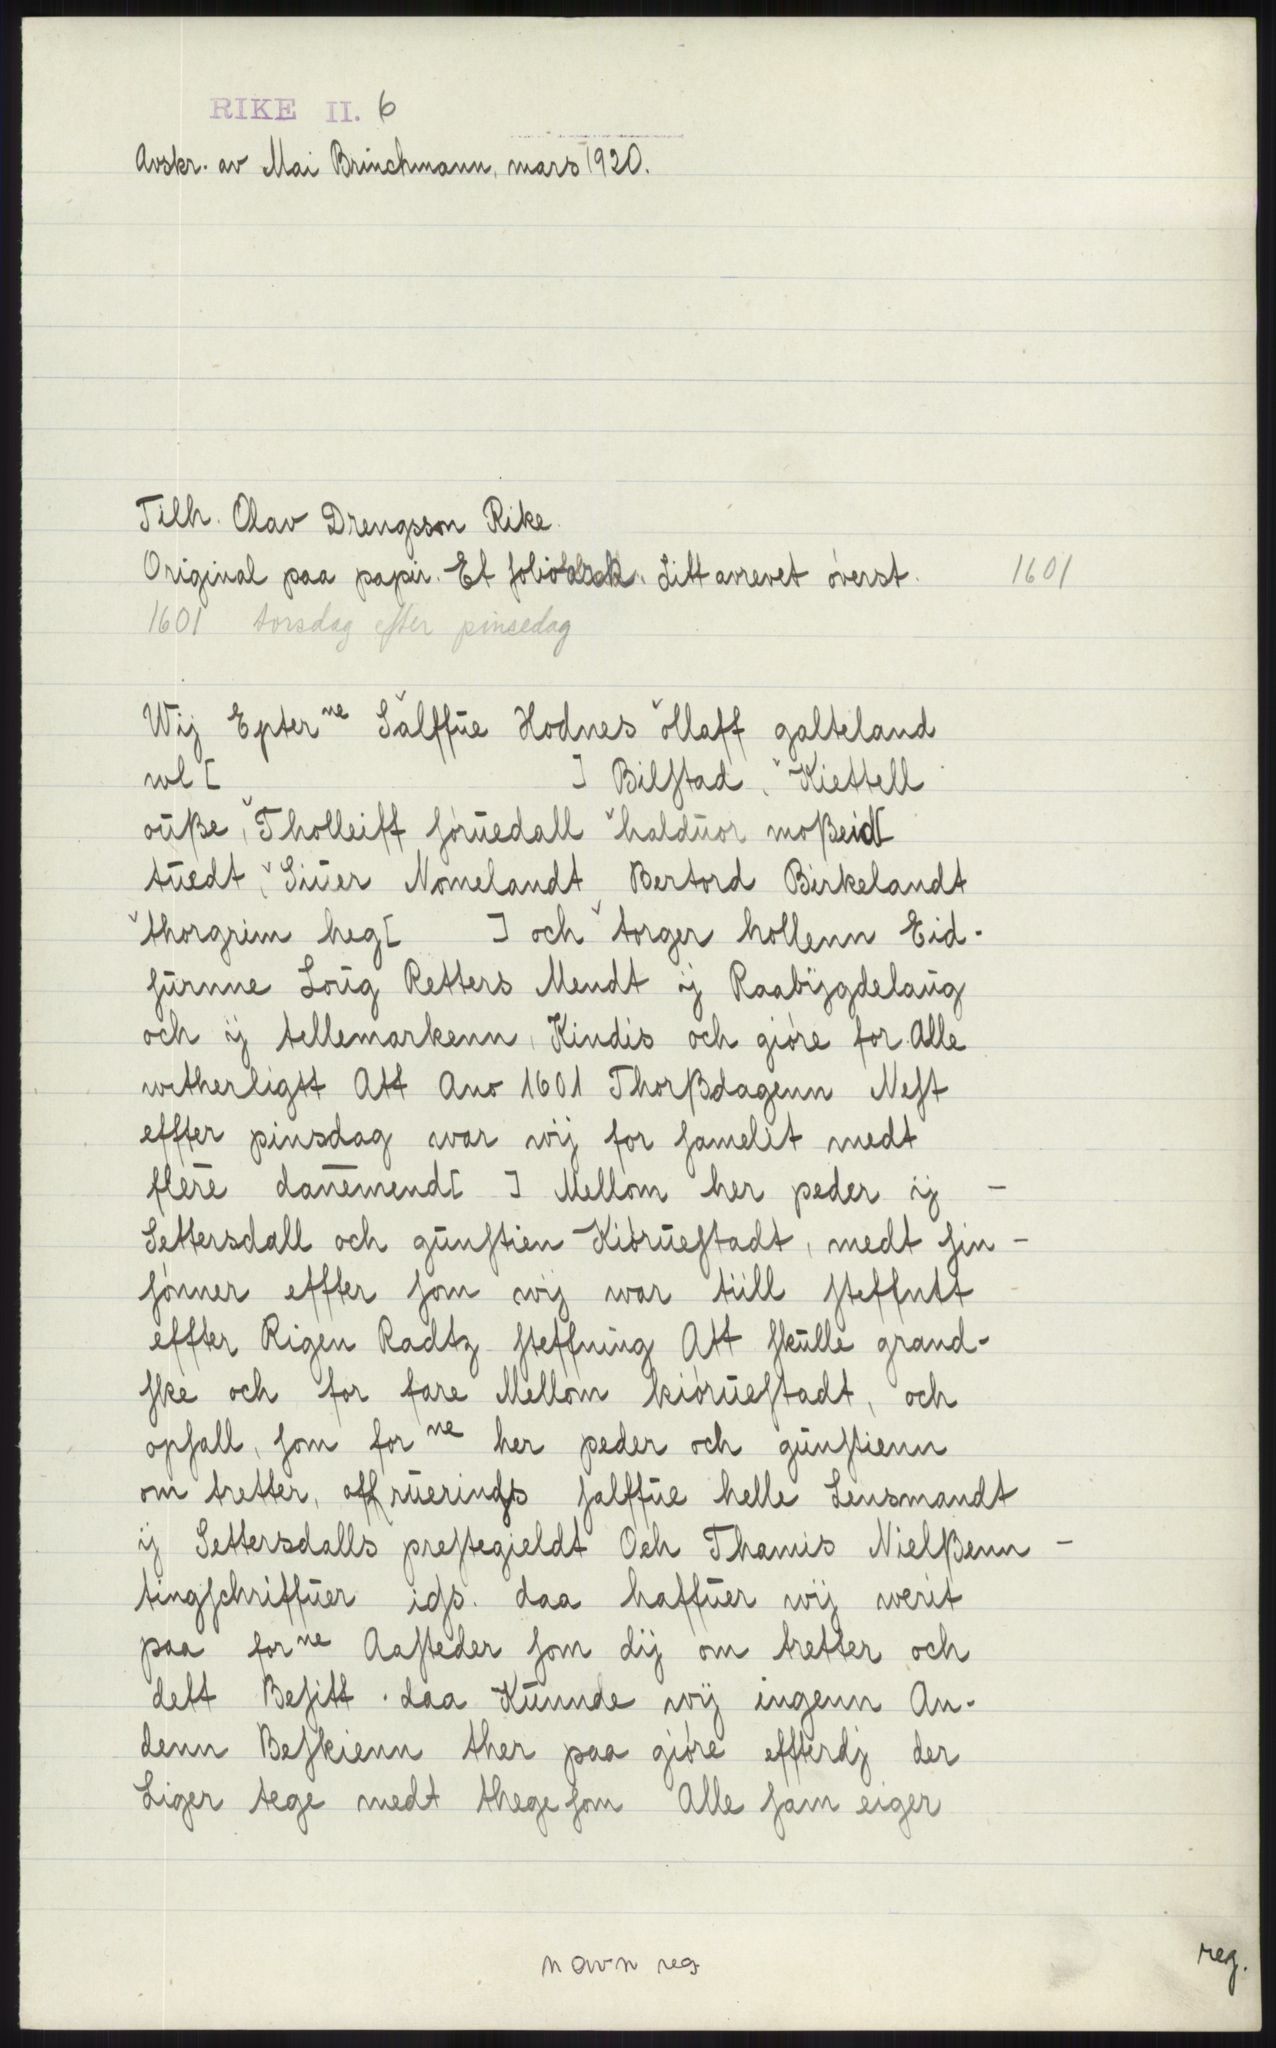 RIKE II. 6
Avskr. av Mai Brinchmann, mars 1920.
Tilh. Olav Drengsson Rike.
Original paa papir. Et folioark. Litt avrevet överst. 1601
1601 torsdag efter pinsedag
Wij Epter ne Salffue Hodnes Ollaff galteland
wl [ ] Bilstad, Kiettell
ouße, Tholleiff föruedall halduor moßeid[
tuedt, Siuer Nomelandt Bertord Birkelandt
thorgrim heg[ ] och torger hollenn Eid-
surnne Loug Retters Mendt ij Raabygdelaug
och ij tellemarkenn, Kindis och giöre for Alle
witherligtt Att Ano 1601 Thorßdagenn Nest
effter pinsdag war wij for samelit medt
flere danemend[ ] Mellom her peder ij -
Settersdall och gunstien Kiörustadt, medt sin -
sönner effter som wij war tiill steffntt
effter Rigen Radtz steffning Att skulle grand-
ske och for fare Mellom kiöruestadt, och
opsall, som for ne her peder och gunstienn
om tretter, offruerinds salffue helle Lensmandt
ij Settersdalls prestegieldt Och Thamis Nielßenn -
tingschriffuer ids. daa haffuer wij werit
paa for ne Aasteder som dij om tretter och
dett Besitt. daa Kunnde wij ingenn An-
denn Beskienn ther paa giöre effterdj der
Liger tege medt thege som Alle sam eiger
navn reg
reg.